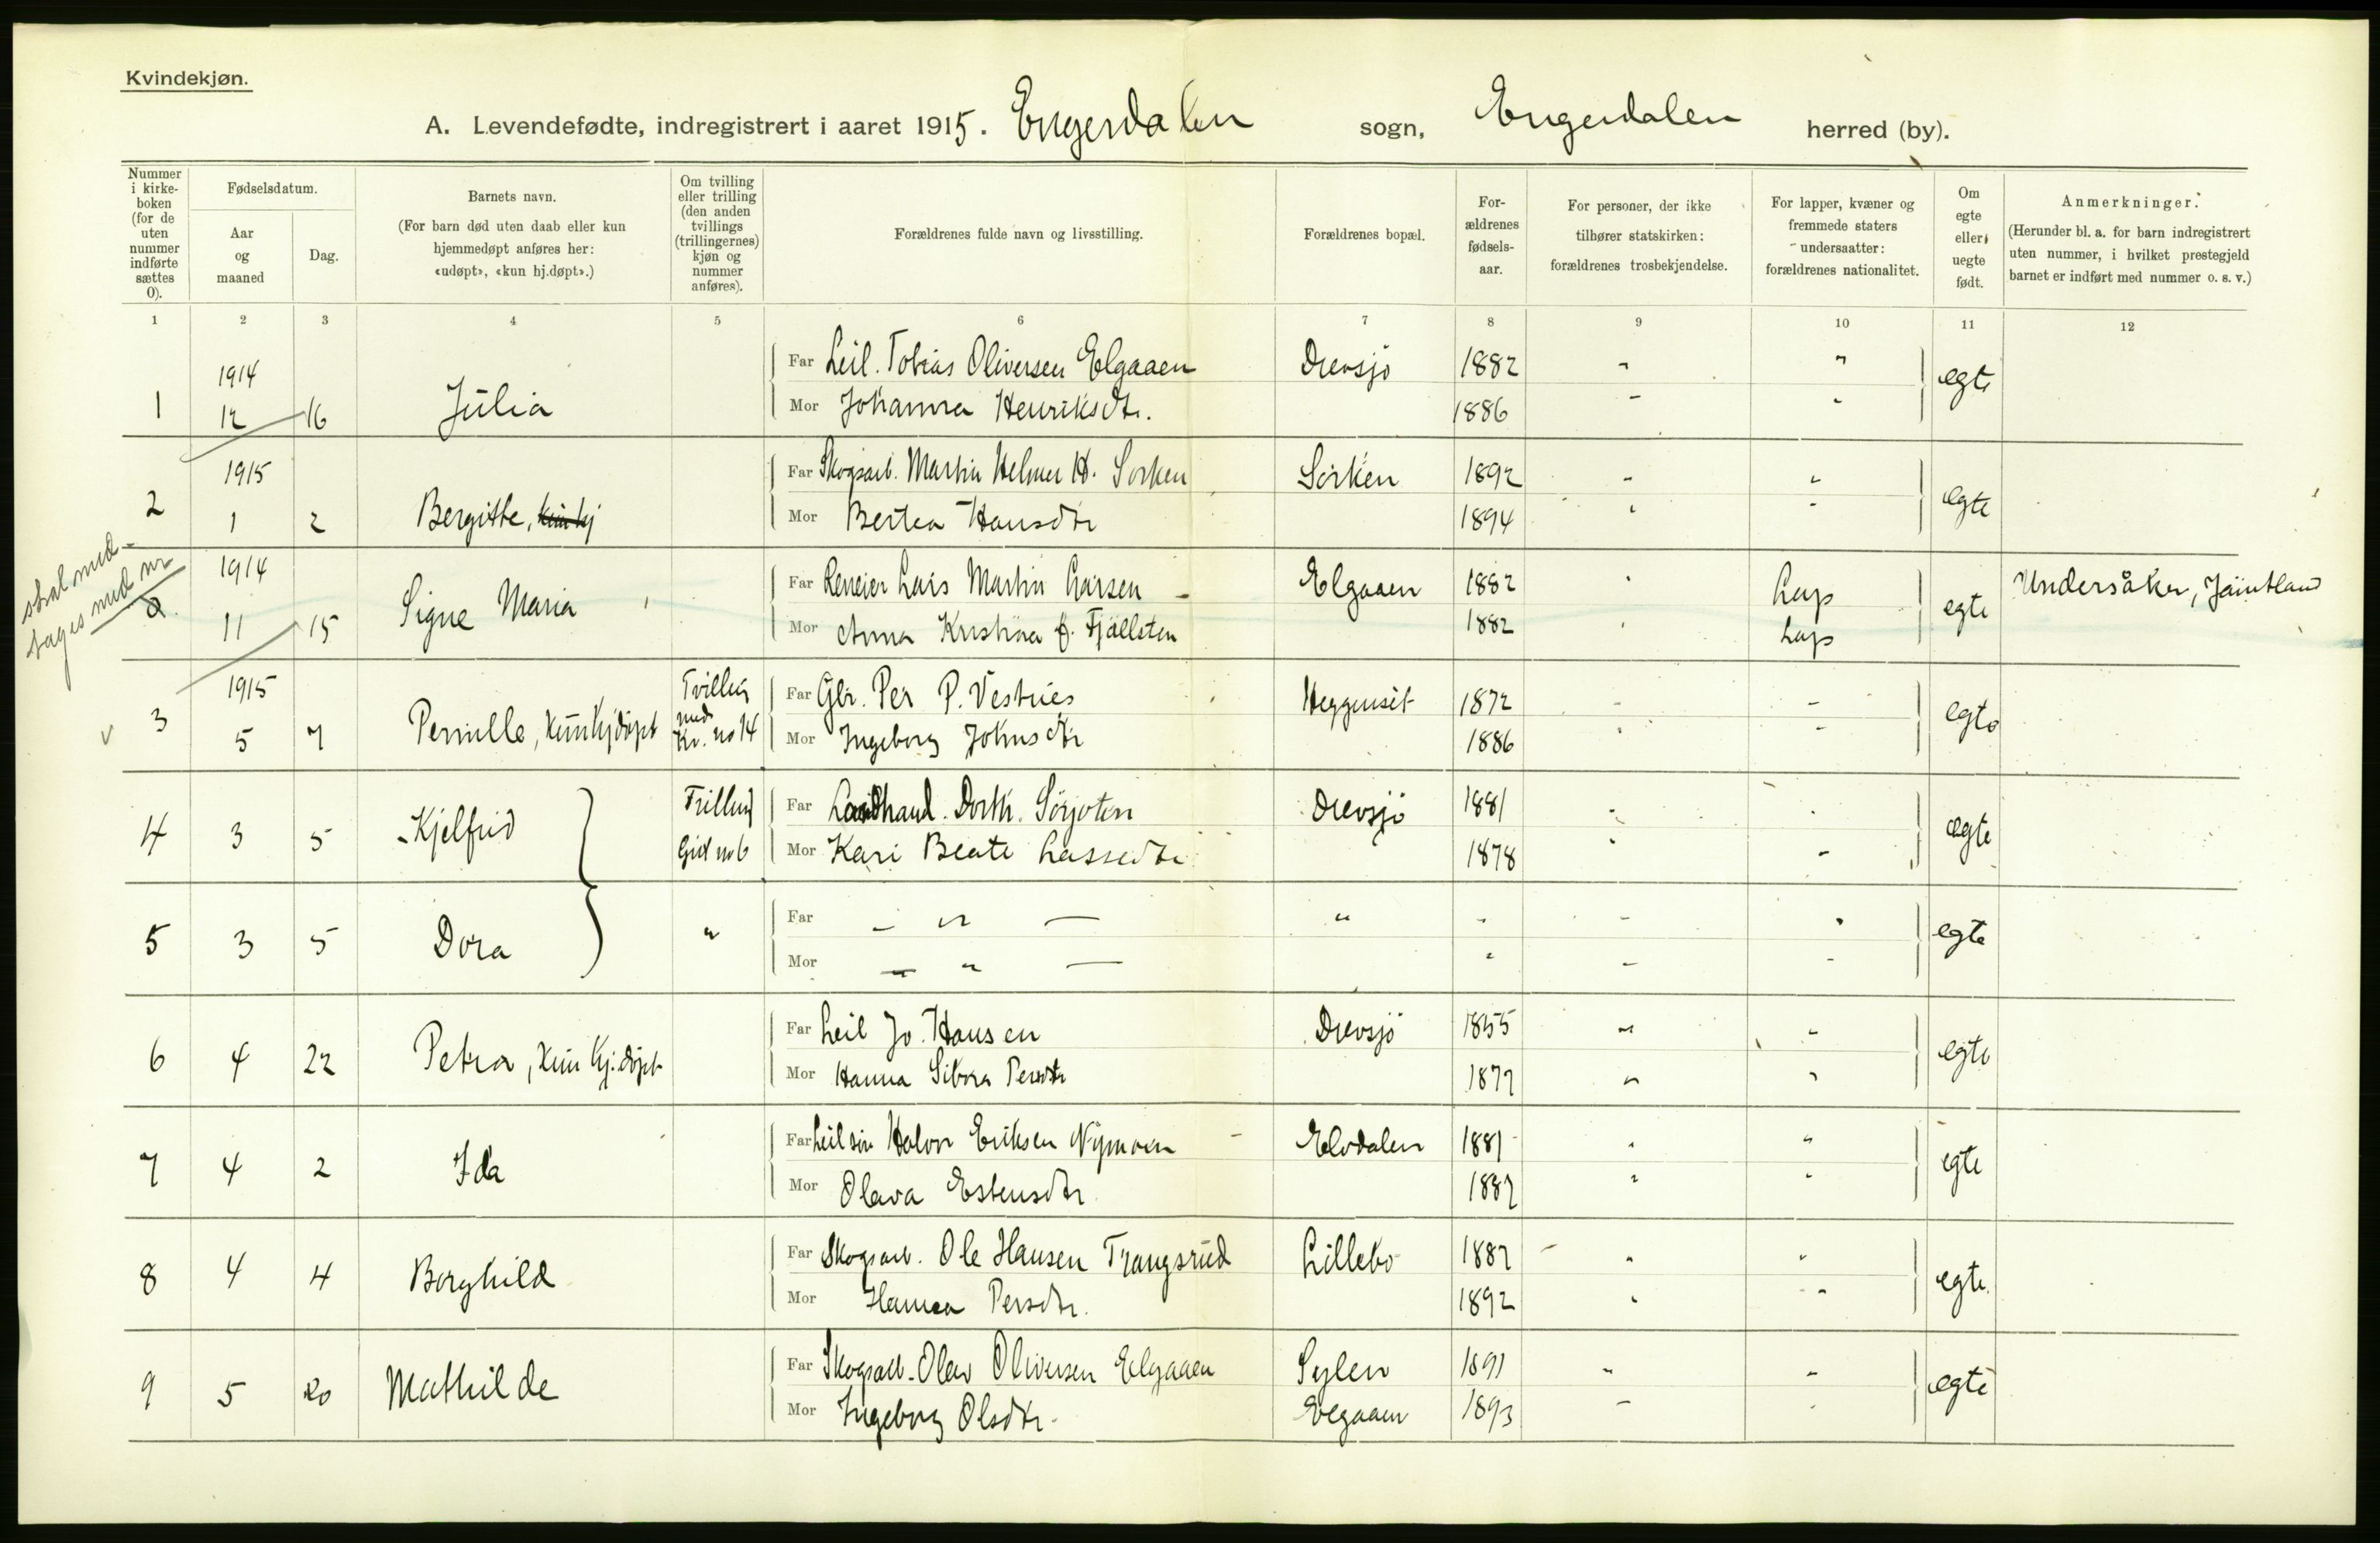 Kvindekjøn.
A. Levendefødte, indregistrert i aaret 1915. Engerdalen sogn, Engerdalen herred (by).
Nummer i kirke- boken (for de uten nummer indførte sættes 0).
Fødselsdatum.
Aar og maaned
Dag.
Barnets navn.
(For barn død uten daab eller kun hjemmedøpt anføres her: «udøpt», «kun hj.døpt».)
Om tvilling eller trilling (den anden tvillings (trillingernes) kjøn og nummer anføres).
Forældrenes fulde navn og livsstilling.
Forældrenes bopæl.
For- ældrenes fødsels- aar.
For personer, der ikke tilhører statskirken: forældrenes trosbekjendelse.
For lapper, kvæner og fremmede staters undersaatter: forældrenes nationalitet.
Om egte eller uegte født.
Anmerkninger.
(Herunder bl. a. for barn indregistrert uten nummer, i hvilket prestegjeld barnet er indført med nummer o. s. v.)
1 2 3 4 5 6 7 8 9 10 11 12
1914
Far Leil. Tobias Oliversen Elgaaen Drevsjø 1882 " "
1 12 16 Julia egte
Mor Johanna Henriksdtr. 1886 " "
1915
Far Skogsarb. Martin Helmer H. Sorken Sorken 1892 " "
2 1 2 Bergitte, kun hj egte
Mor Bertea Hansdtr 1894 " "
skal med-
tages med nr
1914
Far Reneier Lars Martin Larsen Elgaaen 1882 " Lap Undersåker, Jämtland
0 11 15 Signe Maria egte
Mor Anna Kristina f. Fjällsten 1882 " Lap
1915
Far Gbr. Per P. Vestnes Heggenset 1872 " "
3 5 7 Pernille, kun hjdøpt Tvilling med Kv. no 14 egte
Mor Ingeborg Johnsdtr 1886 " "
Far Landhand. Dorth. Sørjoten Drevsjø 1881 " "
4 3 5 Kjelfrid Trilling Gut no 6 egte
Mor Kari Beate Lassedtr 1878 " "
Far - " - " " " "
5 3 5 Dora " egte
Mor - " - " " "
Far Leil Jo. Hansen Drevsjø 1855 " "
6 4 22 Petra, kun hj.døpt egte
Mor Hanna Sibora Persdtr 1877 " "
Far Leilsøn Halvor Eriksen Nymoen Elvdalen 1881 " "
7 4 2 Ida egte
Mor Olava Estensdtr 1887 " "
Far Skogsarb. Ole Hansen Trangsrud Lillebo 1887 " "
8 4 4 Borghild egte
Mor Hanna Persdtr. 1892 " "
Far Skogsarb. Olav Oliversen Elgaaen Sylen 1891 " "
9 5 20 Mathilde egte
Mor Ingeborg Olsdtr. Elgaaen 1893 " "